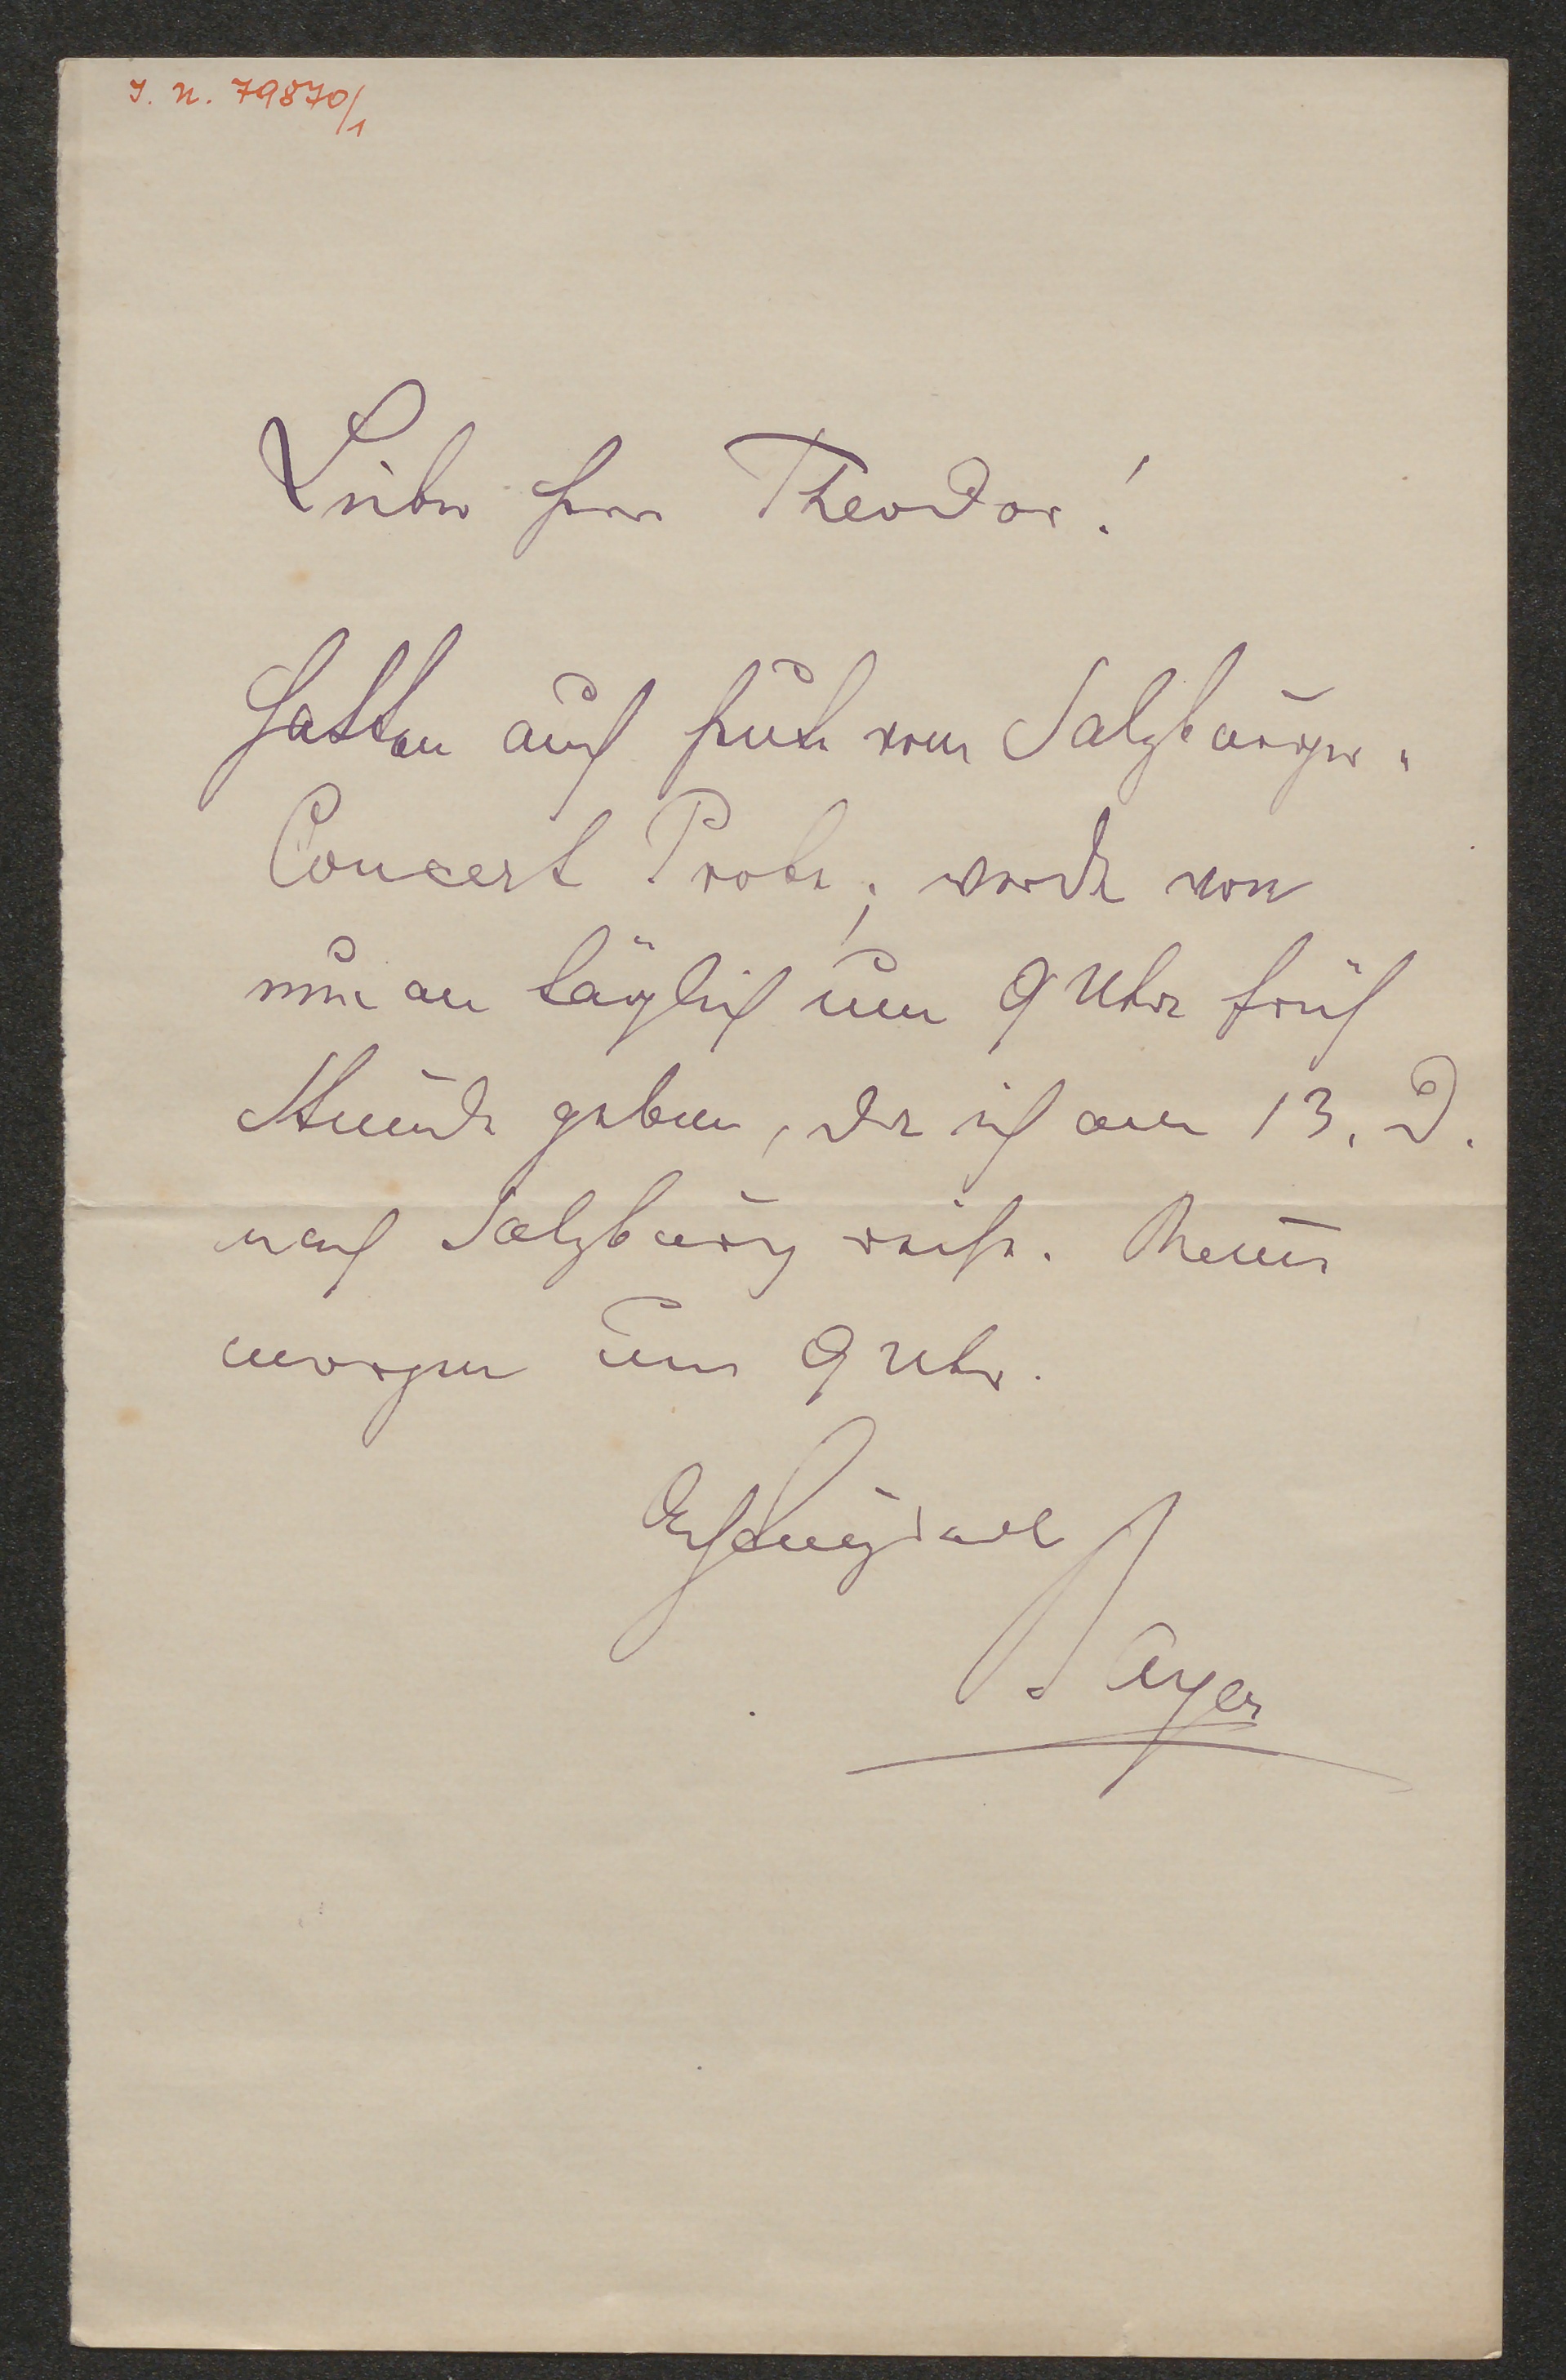 J. N. 79870/1
Lieber Herr Theodor!
Hatten auch heute vom Salzburger-
Concert Probe; werde von
nun an täglich um 9 Uhr früh
Stunde geben, da ich am 13. D.
nach Salzburg reise.
morgen um 9 Uhr.
Achtungsvoll